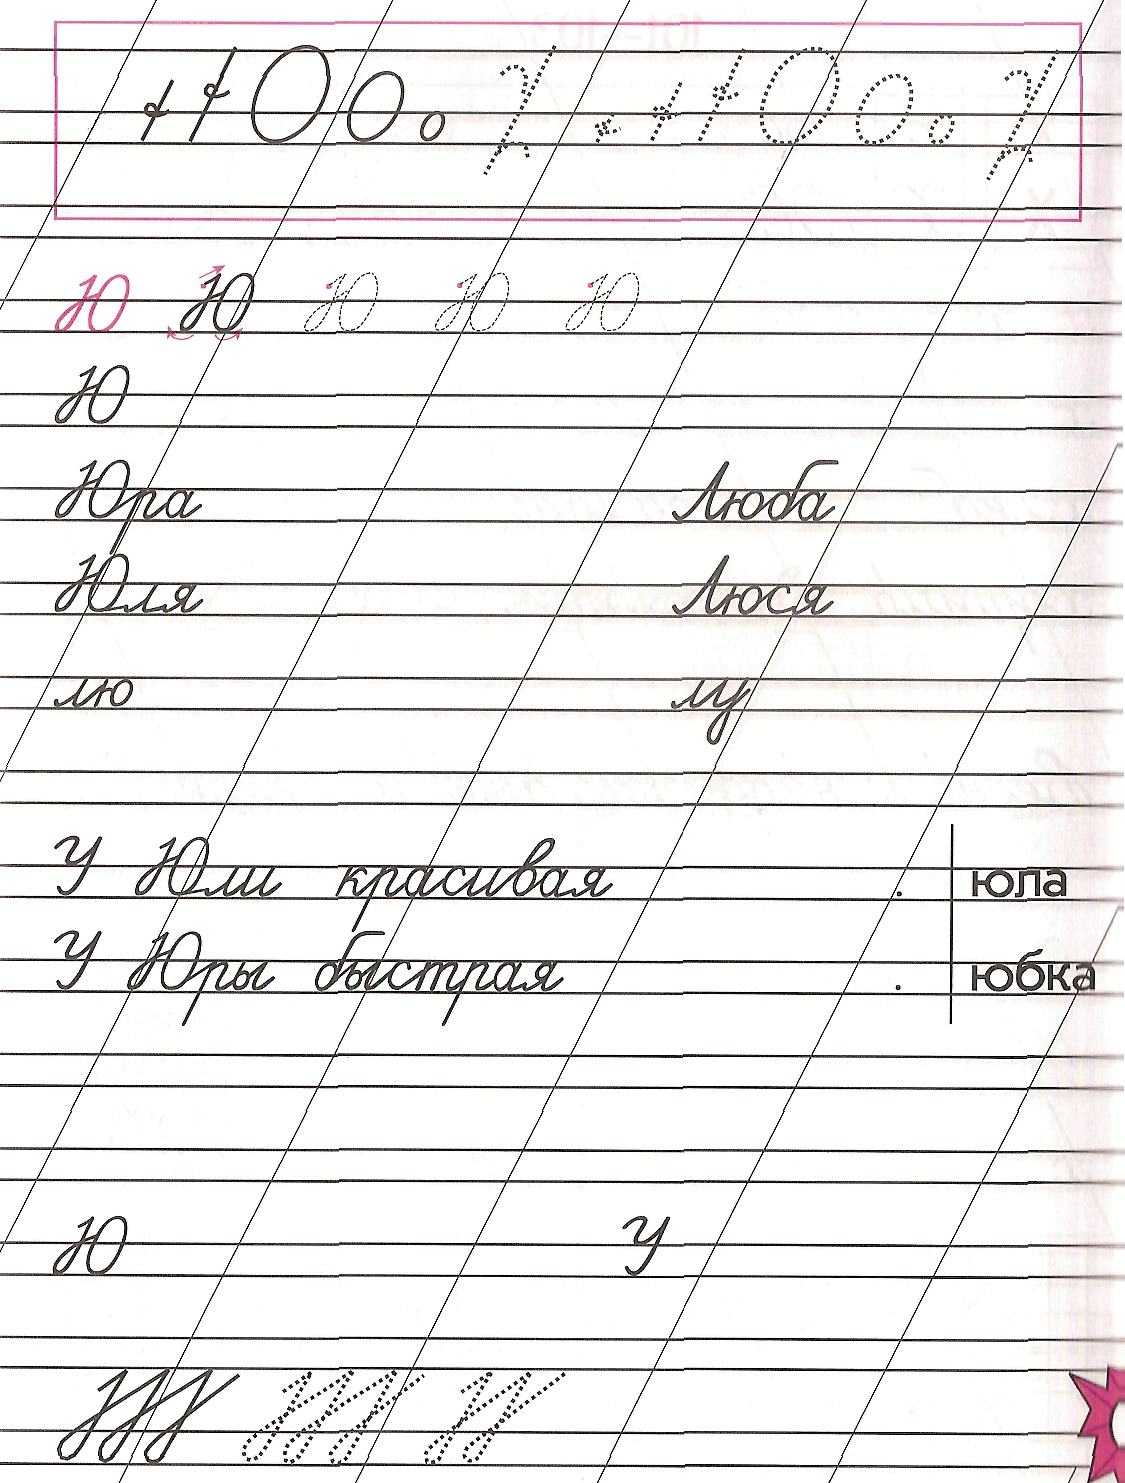 Ю Ю Ю Ю Ю
Ю
Юра Люба
Юля Люся
лю лу
У Юли красивая . юла
У Юры быстрая . юбка
Ю У